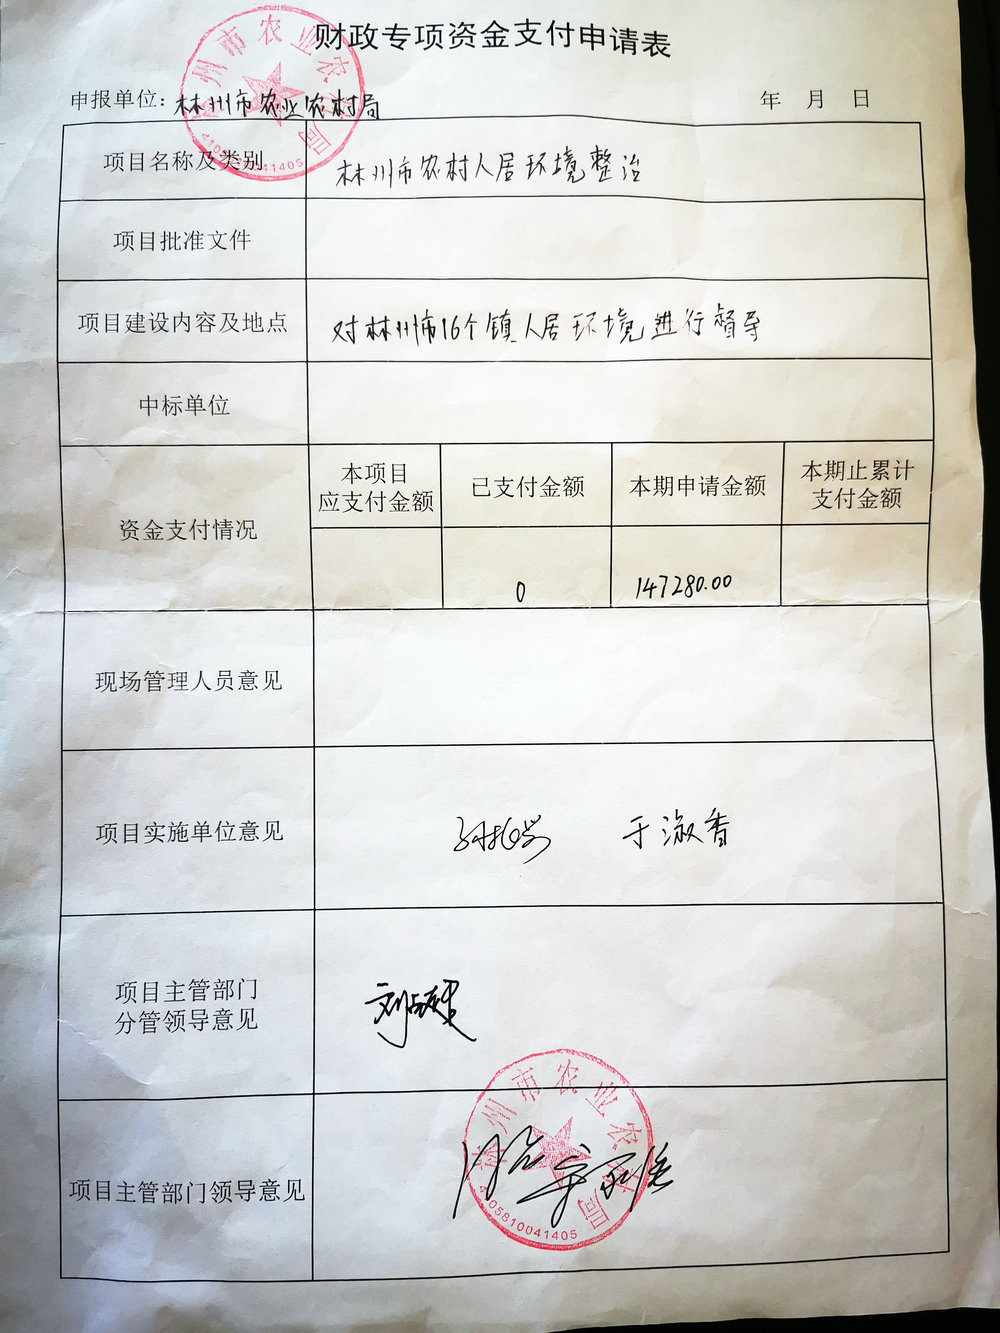 财政专项资金支付申请表
申报单位：林州市农业农村局 年 月 日
林州市农业农村局
4105810041405
项目名称及类别 林州市农村人居环境整治
项目批准文件
项目建设内容及地点 对林州市16个镇人居环境进行督导
中标单位
资金支付情况
本项目
应支付金额
已支付金额
本期申请金额
本期止累计
支付金额
0
147280.00
现场管理人员意见
项目实施单位意见 于淑香
项目主管部门
分管领导意见
项目主管部门领导意见
林州市农业农村局
4105810041405